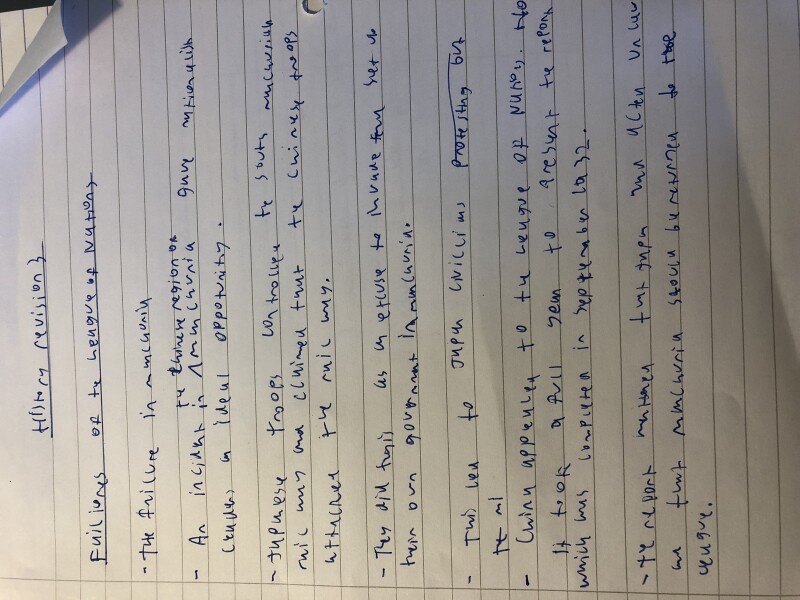 History revision 3
Failures of te League of Nations
- The failure in manchuria
te Chinese region of
- An incident in manchuria gave nationalist
leaders a ideal opportunity.
- Japanese troops controlled te South manchurian
railway and claimed that the chinese troops
attacked the railway.
- They did this as an excuse to invade and set up
their own government in manchuria.
- This led to Japan civilians protesting but
- China appealed to te League of Nations. The
It took a full year to present te report
which was completed in september 1932.
- te report that Japan had acted
and that manchuria should be returned to the
league.